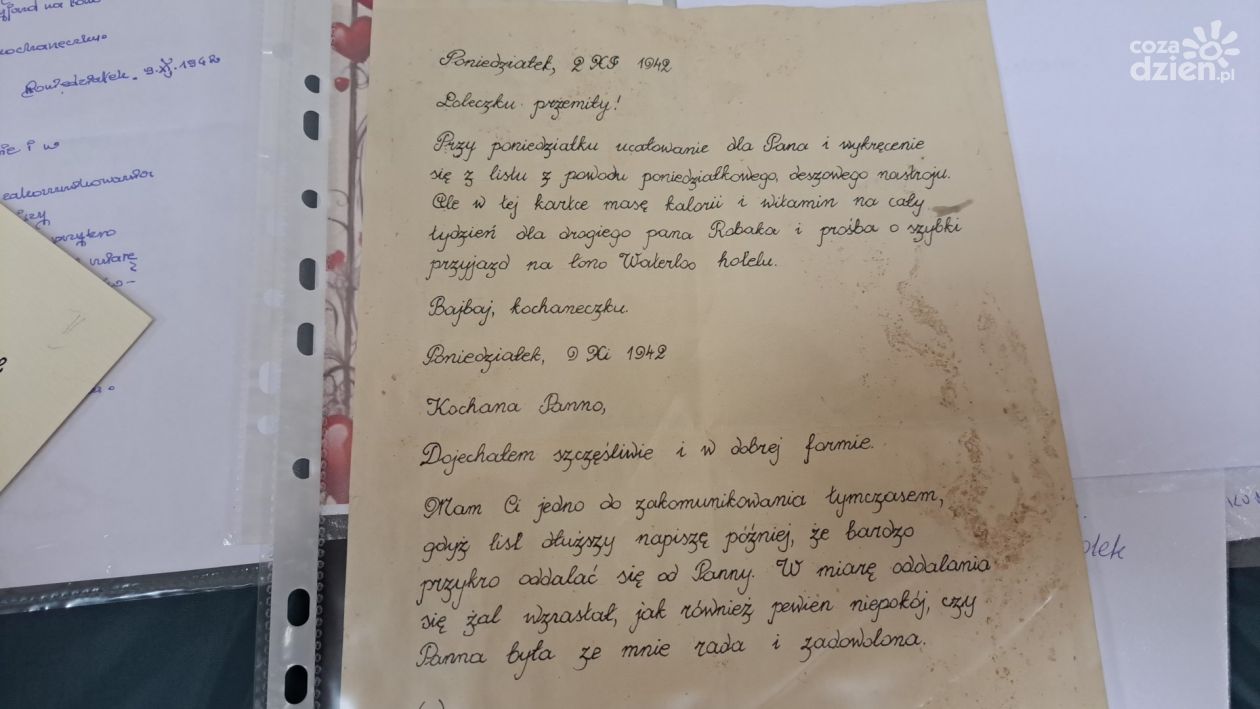 kochaneczku.
Poniedziałek. 9.XI.1942
nie i w
zakomunikowania
przykro
miarę
Poniedziałek, 2 XI 1942
Loleczku przemiły!
Przy poniedziałku ucałowanie dla Pana i wykręcenie
się z listu z powodu poniedziałkowego, deszowego nastroju.
Ale w tej kartce masę kalorii i witamin na cały
tydzień dla drogiego pana Robaka i prośba o szybki
przyjazd na łono Waterloo hotelu.
Bajbaj, kochaneczku.
Poniedziałek, 9 XI 1942
Kochana Panno,
Dojechałem szczęśliwie i w dobrej formie.
Mam Ci jedno do zakomunikowania tymczasem,
gdyż list dłuższy napiszę później, że bardzo
przykro oddalać się od Panny. W miarę oddalania
się żal wzrastał, jak również pewien niepokój, czy
Panna była ze mnie rada i zadowolona.
(...)
ołek
coza
dzien.pl